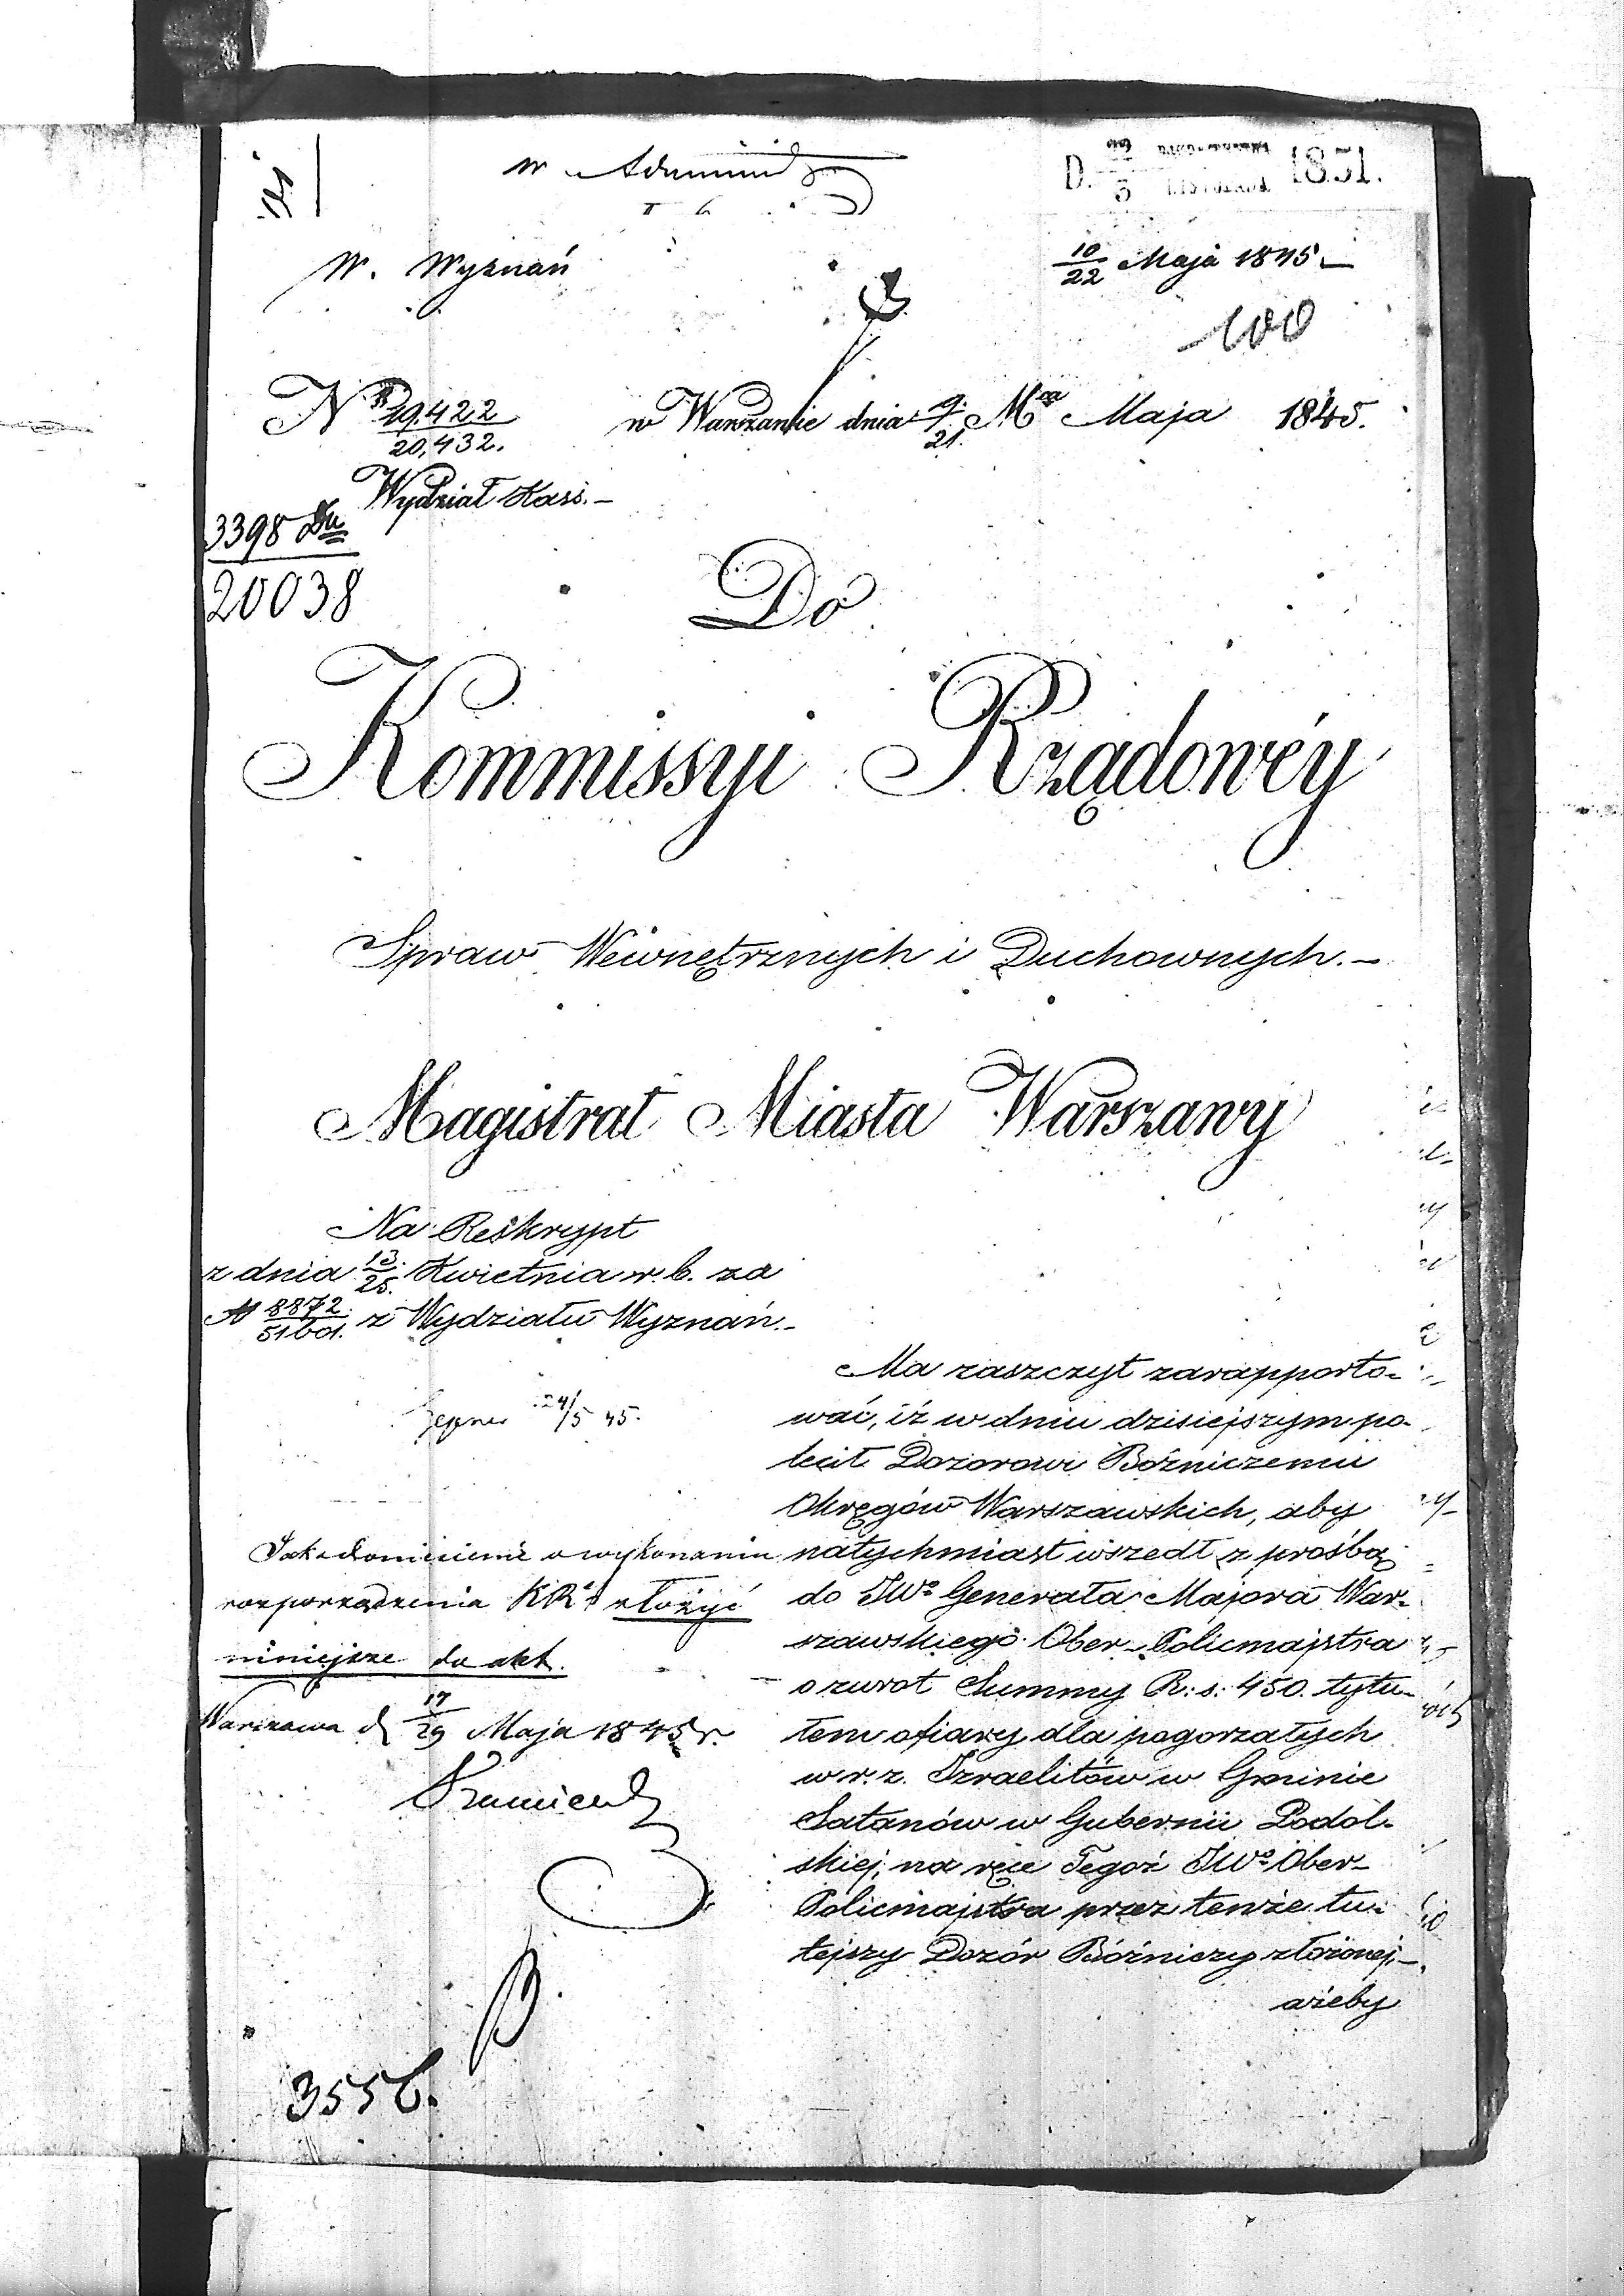 W. Wyznań
D. 3 1851.
10/22 Maja 1845
100
Nr 19.422/20,432. w Warszawie dnia 9/21. Mca Maja 1845.
Wydział Kass.
3398
20038
Do
Kommissyi Rządowéy
Spraw Wewnętrznych i Duchownych.
Magistrat Miasta Warszawy
Na Reskrypt
z dnia 13/25. Kwietnia r. b. za
N z Wydziału Wyznań.
24/5 45.
Ma zaszczyt zarapporto-
wać, iż w dniu dzisiejszym po-
lecił Dozorowi Bóżniczemu
Okręgów Warszawskich, aby
natychmiast wszedł z prośbą
do JWo Generała Majora War-
szawskiego Ober-Policmajstra
o zwrot Summy R: s: 450. tytu-
łem ofiary dla pogorzałych
w r. z. Izraelitów w Gminie
Satanów w Gubernii Podol-
skiej, na ręce Tegoż JWo Ober-
Policmajstra przez tenże tu-
tejszy Dozór Bóżniczy złożonej,
ażeby
Jako doniesienie o wykonaniu
rozporządzenia KRz złożyć
niniejsze do akt.
Warszawa d 17/29 Maja 1845 r.
3556.